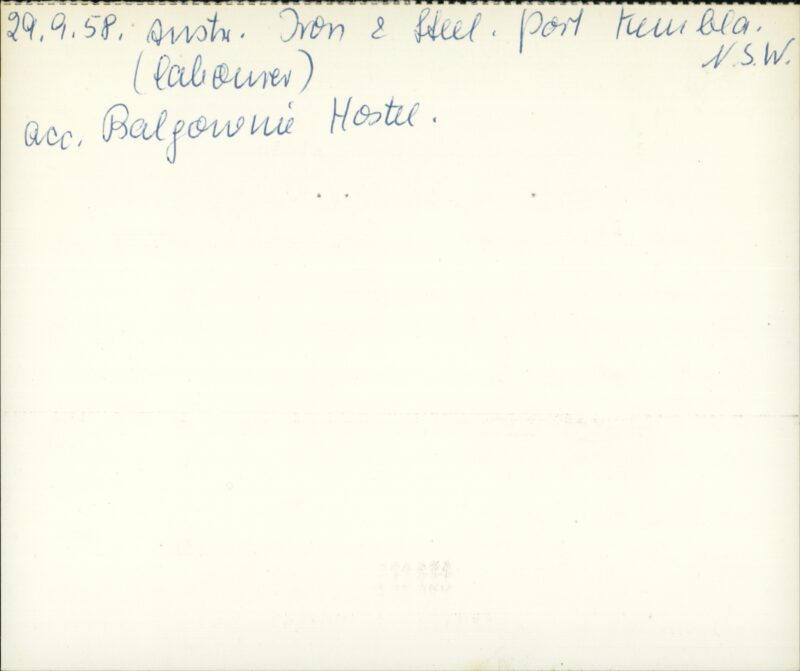 29.9.58. Austr. Iron & Steel. Port Kembla.
N.S.W.
(labourer)
acc. Balgownie Hostel.